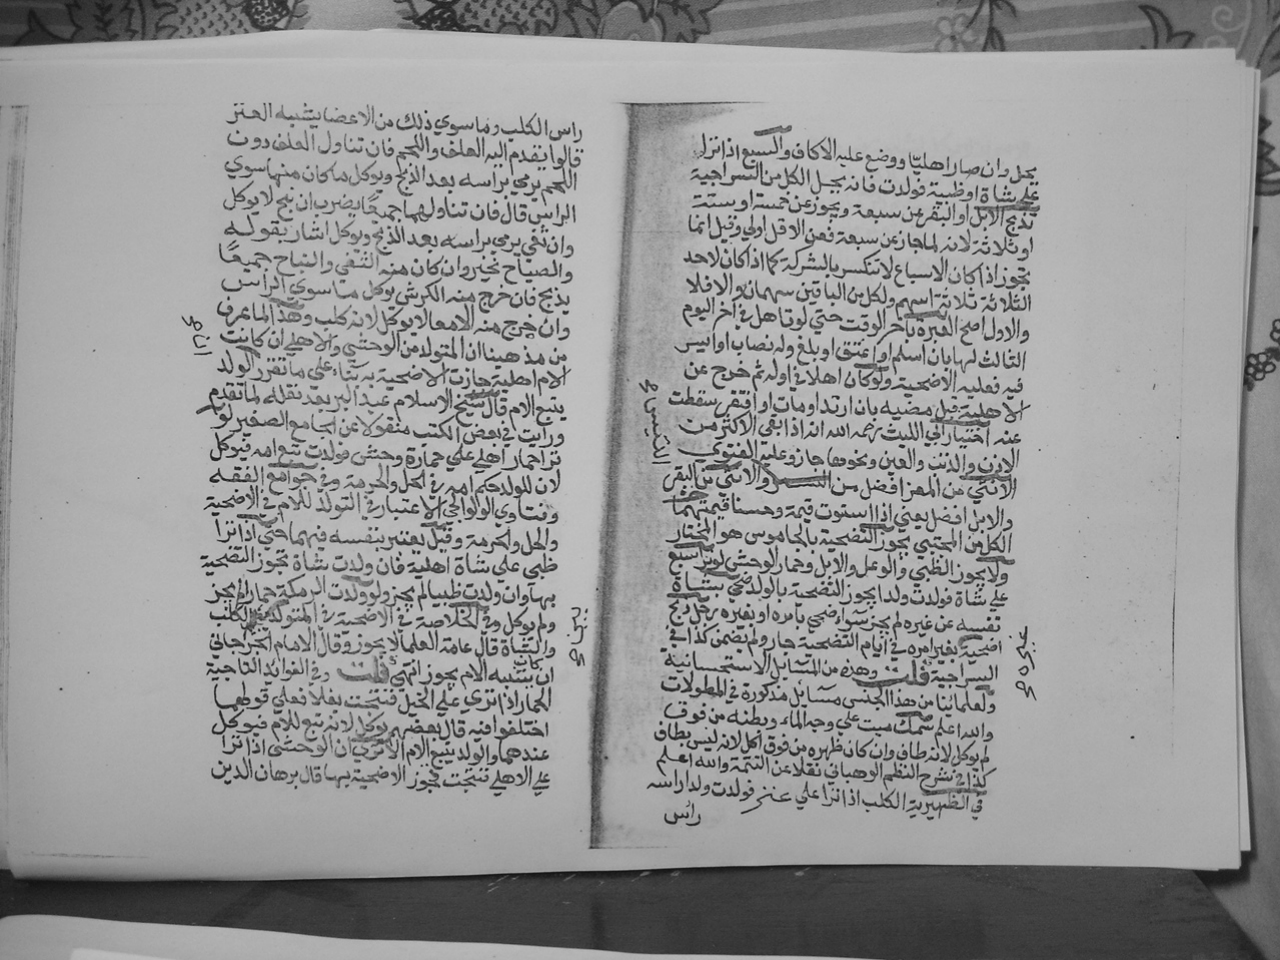 يحل وان صار اهليا ووضع عليه الاكاف والسبع اذا نزا
على شاة او ظبية فولدت فانه يحل الكل من السراجية
تذبح الابل او البقر عن سبعة ويجوز عن خمسة او ستة
او ثلاثة لانه لما جاز عن سبعة فعن الاقل اولى وقيل انما
يجوز اذا كان الاسباع لا تنكسر بالشركة كما اذا كان لاحد
الثلاثة ثلاثة اسهم ولكل من الباقين سهمان والا فلا
والاول اصح العبرة بآخر الوقت حتى لو تاهل في آخر اليوم
الثالث لها بان اسلم او اعتق او بلغ وله نصاب او ايسر
فيه فعليه الاضحية ولو كان اهلا في اوله ثم خرج عن
الاهلية قبل مضيه بان ارتد او مات او افتقر سقطت
عنه اختيار ابي الليث رحمه الله انه اذا بقى الاكثر من
الاذن والذنب والعين ونحوها جاز وعليه الفتوى
الانثى من المعز افضل من التيس والانثى من البقر
والابل افضل يعني اذا استوت قيمة وحسنا قيمتهما
الكل من المجتبى يجوز التضحية بالجاموس هو المختار
ولا يجوز الظبي والوعل والابل وحمار الوحش لو نزا سبع
على شاة فولدت ولدا يجوز التضحية بالولد ضحى بشاة
نفسه عن غيره لم يجز سواء ضحى بامره او بغيره رجل ذبح
اضحية بغير امره في ايام التضحية جاز ولم يضمن كذا في
السراجية قلت وهذه من المسايل الاستحسانية
ولعلمائنا من هذا الجنس مسايل مذكورة في المطولات
والله اعلم سمك ميت على وجه الماء وبطنه من فوق
لم يوكل لانه طاف وان كان ظهره من فوق اكل لانه ليس بطاف
كذا في شرح النظم الوهباني نقلا عن التتمة والله اعلم
في الظهيرية الكلب اذا نزا على عنز فولدت ولدا راسه
راس
التيس صح
غيره صح
راس الكلب وما سوى ذلك من الاعضا يشبه العنز
قالوا يقدم اليه العلف واللحم فان تناول العلف دون
اللحم يرمى براسه بعد الذبح ويوكل ما كان منها سوى
الراس قال فان تناولهما جميعا يضرب ان نبح لا يوكل
وان ثغى يرمى براسه بعد الذبح ويوكل اشار بقوله
والصياح تخبر وان كان منه الثغى والنباح جميعا
يذبح فان خرج منه الكرش يوكل ما سوى الراس
وان خرج منه الامعا لا يوكل لانه كلب وهذا لما عرف
من مذهبنا ان المتولد من الوحشي والاهلي ان كانت
الام اهلية جازت الاضحية به بناء على ما تقرر الولد
يتبع الام قال شيخ الاسلام عبد البر بعد نقله لما تقدم
ورايت في بعض الكتب منقولا عن الجامع الصغير لو
نزا حمار اهلي على حمارة وحشي فولدت تبع امه فيوكل
لان للولد حكم امه في الحل والحرمة وفي جوامع الفقه
وفتاوي الولوالجي الاعتبار في التولد للام في الاضحية
والحل والحرمة وقيل يعتبر بنفسه فيهما حتى اذا نزا
ظبي على شاة اهلية فان ولدت شاة تجوز التضحية
بها وان ولدت ظبيا لم يجز ولو ولدت الرمكة حمارا لم يجز
ولم يوكل وفي الخلاصة في الاضحية في المتولد بين الكلب
والشاة قال عامة العلما لا يجوز وقال الامام الجرجاني
ان كان يشبه الام يجوز انتهى قلت وفي الفوائد التاجية
الحمار اذا نزى على الخيل فنتجت بغلا فعلى قولهما
اختلفوا فيه قال بعضهم يوكل لانه تبع للام فيوكل
عندهما والولد يتبع الام الا ترى ان الوحشي اذا نزا
على الاهلي فنتجت تجوز الاضحية بها قال برهان الدين
بين صح